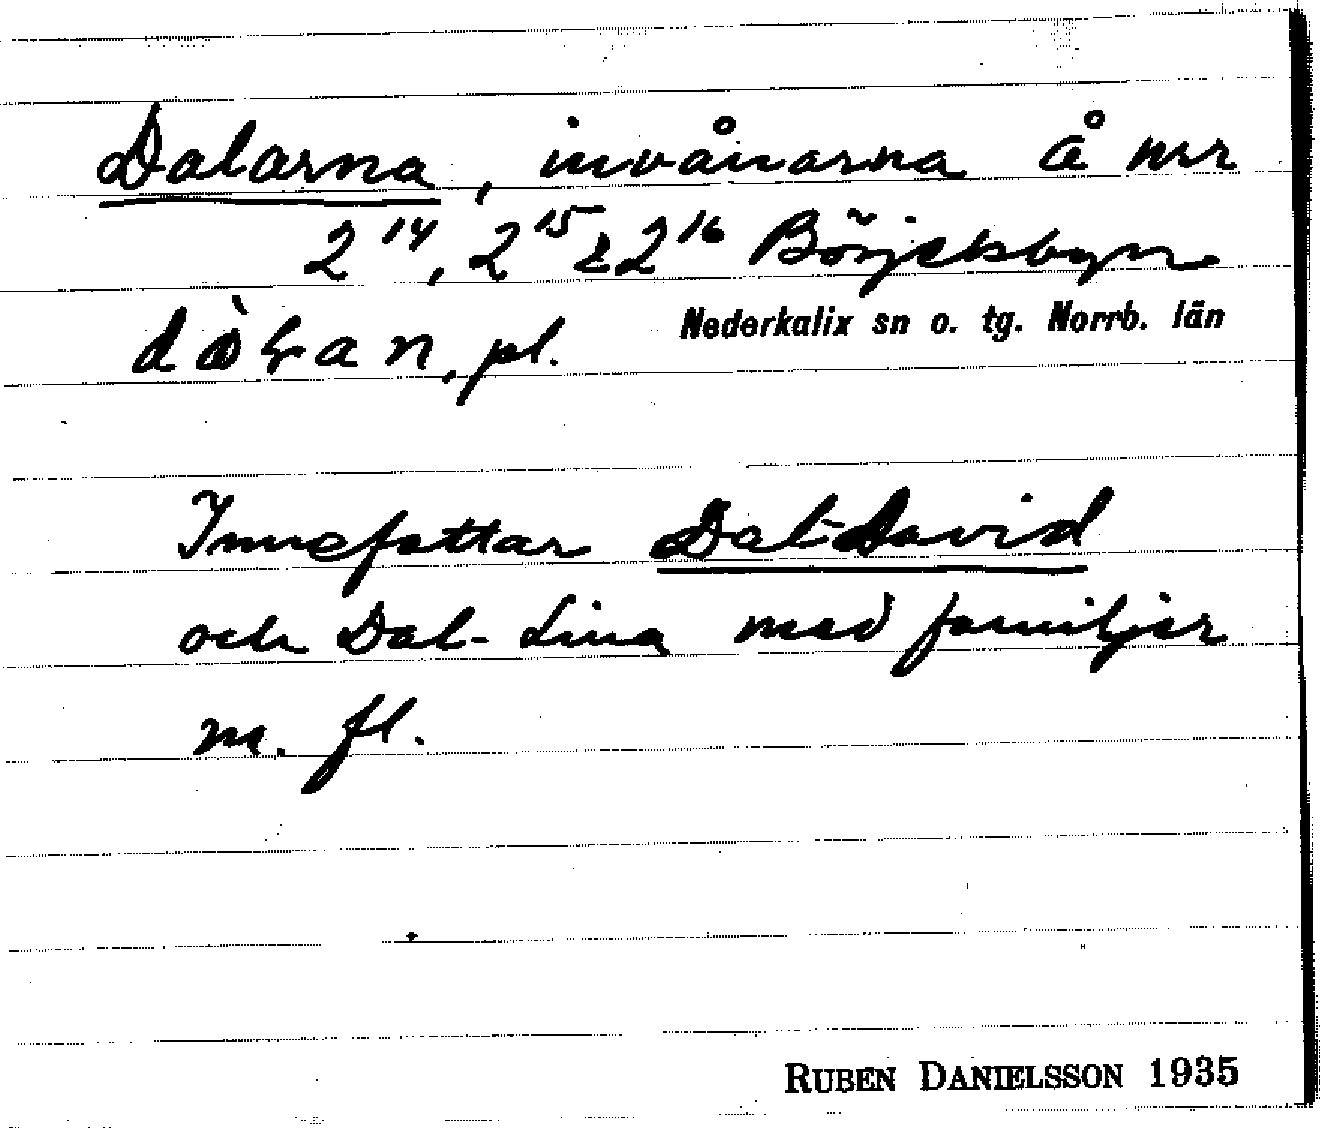 Dalarna, invånarna å nrr
2¹⁴, 2¹⁵ & 2¹⁶ Börjelsbyn
Nederkalix sn o. tg. Norrb. län
pl.
Innefattar Dal-David
och Dal-Lina med familjer
m. fl.
RUBEN DANIELSSON 1935